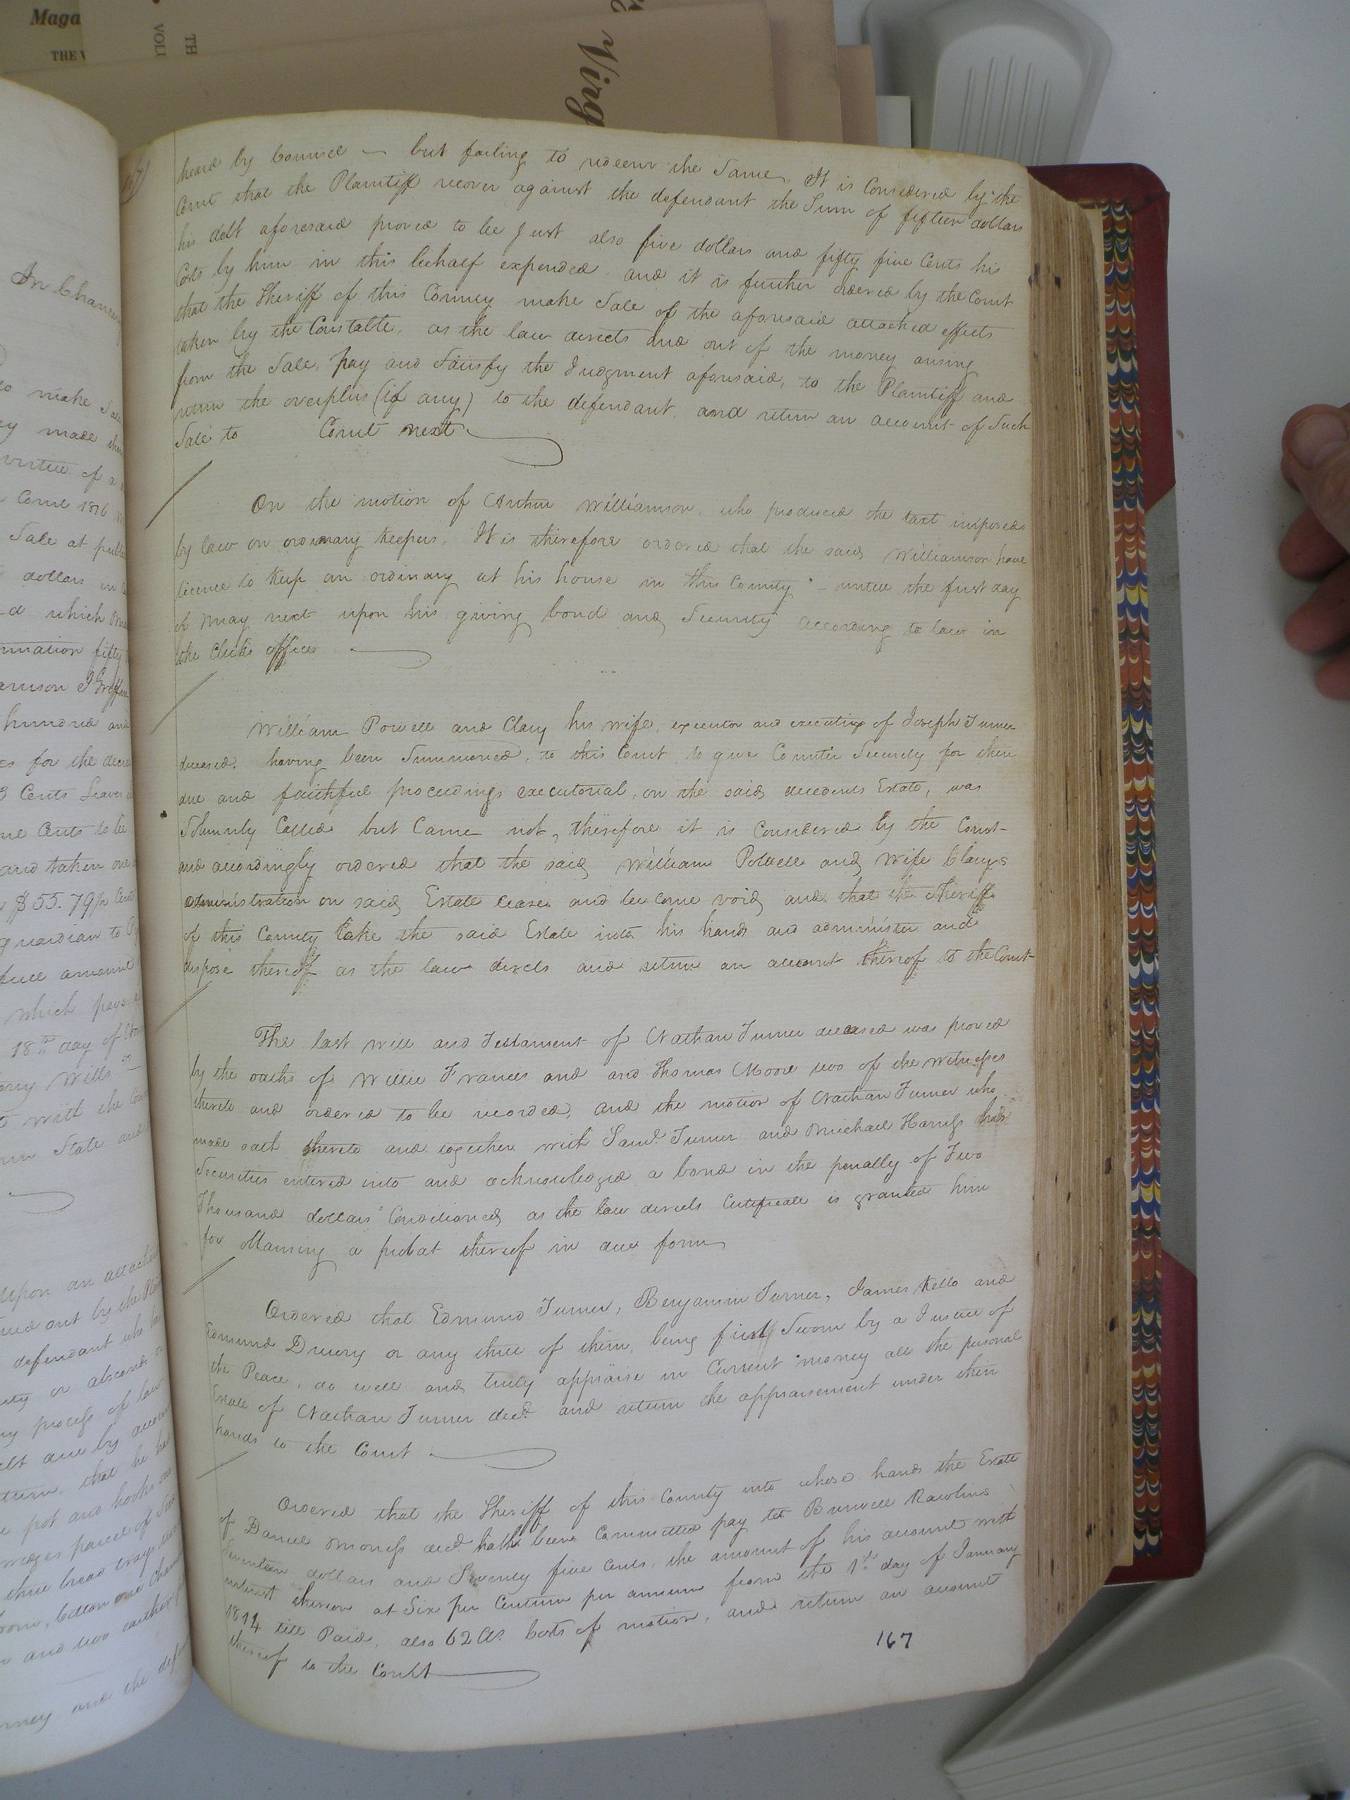 Maga
THE V
VOLU
TH
Virg
heard by Counsel — but failing to redeem the Same, It is Considered by the
Court that the Plaintiff recover against the defendant the Sum of fifteen dollars
his debt aforesaid proved to be Just also five dollars and fifty five Cents his
Costs by him in this behalf expended and it is further Ordered by the Court
that the Sheriff of this County make Sale of the aforesaid attached effects
taken by the Constable, as the law directs and out of the money arising
from the Sale, pay and Satisfy the Judgment aforesaid, to the Plaintiff and
return the overplus (if any) to the defendant, and return an account of Such
Sale to Court next
On the motion of Arthur Williamson, who produced the tax imposed
by law on ordinary keepers, It is therefore ordered that the said Williamson have
licence to Keep an ordinary at his house in this County - untill the first day
of May next upon his giving bond and Security according to law in
the Clerks office
William Powell and Clary his wife, executor and executrix of Joseph Turner
deceased, having been Summoned, to this Court, to give Counter Security for their
due and faithful proceedings executorial, on the said decedents Estate, was
Solemnly Called but Came not, therefore it is Considered by the Court
and accordingly ordered that the said William Powell and wife Clarys
administration on said Estate cease and become void and that the Sheriff
of this County take the said Estate into his hands and administer and
dispose thereof as the law directs and return an account thereof to the Court
The last will and Testament of Nathan Turner deceased was proved
by the oaths of Willie Frances and and Thomas Moore two of the witnesses
thereto and ordered to be recorded, and the motion of Nathan Turner who
made oath thereto and together with Saml. Turner and Michael Harriss his
Securities entered into and acknowledged a bond in the penalty of Two
Thousand dollars Conditioned as the law directs Certificate is granted him
for Obtaining a probat thereof in due form
Ordered that Edmund Turner, Benjamin Turner, James Kello and
Edmund Drewry or any three of them, being first Sworn by a Justice of
the Peace, do well and truly appraise in Current money all the personal
Estate of Nathan Turner decd. and return the appraisement under their
hands to the Court
Ordered that the Sheriff of this County into whose hands the Estate
of Daniel Moness decd hath been Committed pay to Burwell Rawlins
Seventeen dollars and Seventy five cents, the amount of his account with
interest thereon at Six per Centum per annum from the 1st day of January
1814 till Paid, also 62 Cts. Costs of motion, and return an account
thereof to the Court
167
In Chancery
to make Sale
virtue of a
Court 1816
Sale at public
dollars in
hundred and
s for the
3 Cents leaves
Cents to be
and taken
$55.79
guardian to
full amount
which pays
18th day of
with the
State and
upon an attach
out by the
defendant who
or absconds
process of law
due by account
that he
pot and hooks
parcel of
three bread trays
and two
and the